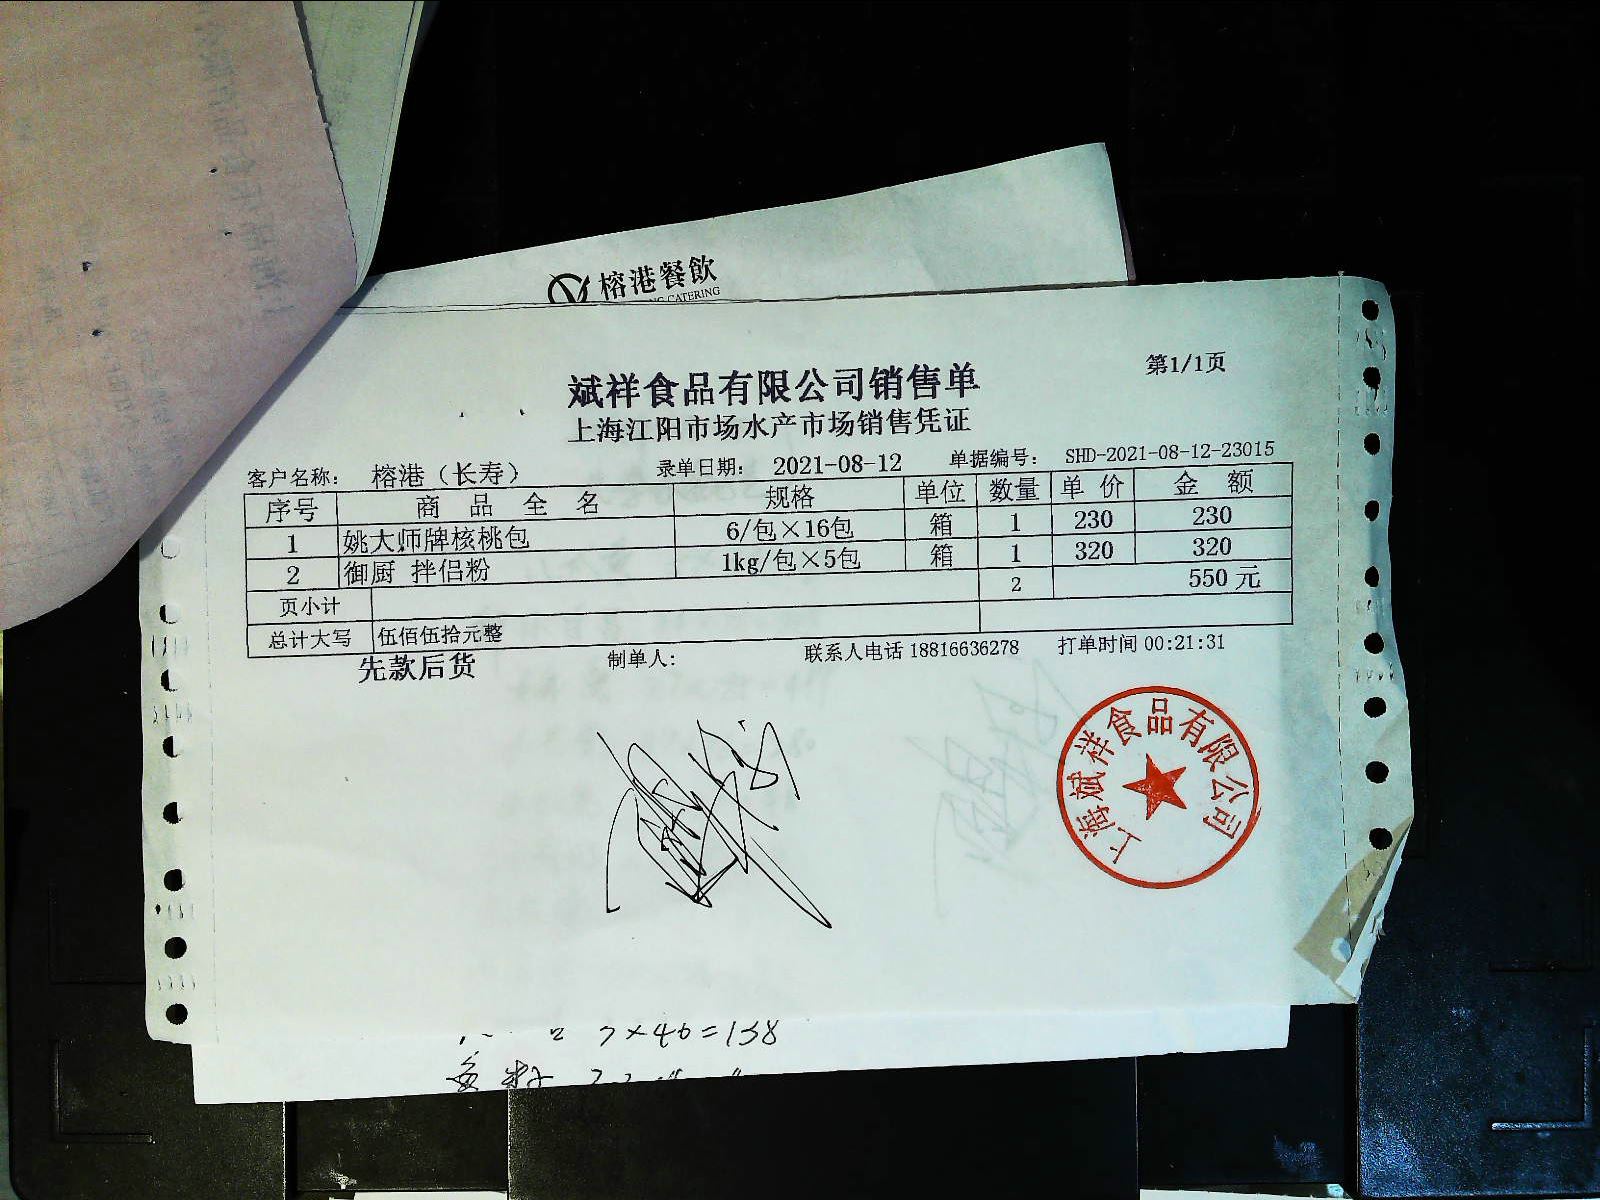 榕港餐飲
CATERING
第1/1页
斌祥食品有限公司销售单
上海江阳市场水产市场销售凭证
客户名称： 榕港（长寿） 录单日期： 2021-08-12 单据编号： SHD-2021-08-12-23015
序号 商 品 全 名 规格 单位 数量 单 价 金 额
1 姚大师牌核桃包 6/包×16包 箱 1 230 230
2 御厨 拌侣粉 1kg/包×5包 箱 1 320 320
页小计 2 550 元
总计大写 伍佰伍拾元整
先款后货 制单人： 联系人电话 18816636278 打单时间 00:21:31
上海斌祥食品有限公司
×46=138